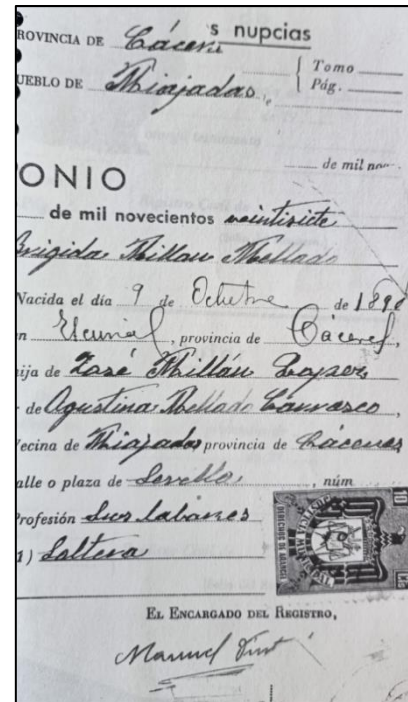 s nupcias
ROVINCIA DE Cáceres
Tomo
UEBLO DE Miajadas
Pág.
de mil nov
ONIO
de mil novecientos veintisiete
Brigida Millan Mellado
Nacida el día 9 de Octubre de 1898
n Escurial, provincia de Cáceres,
ija de José Millán
de Agustina Mellado Carrasco,
Vecina de Miajadas provincia de Cáceres
alle o plaza de Sevilla, núm
Profesión Sus labores
1) Soltera
EL ENCARGADO DEL REGISTRO,
Manuel